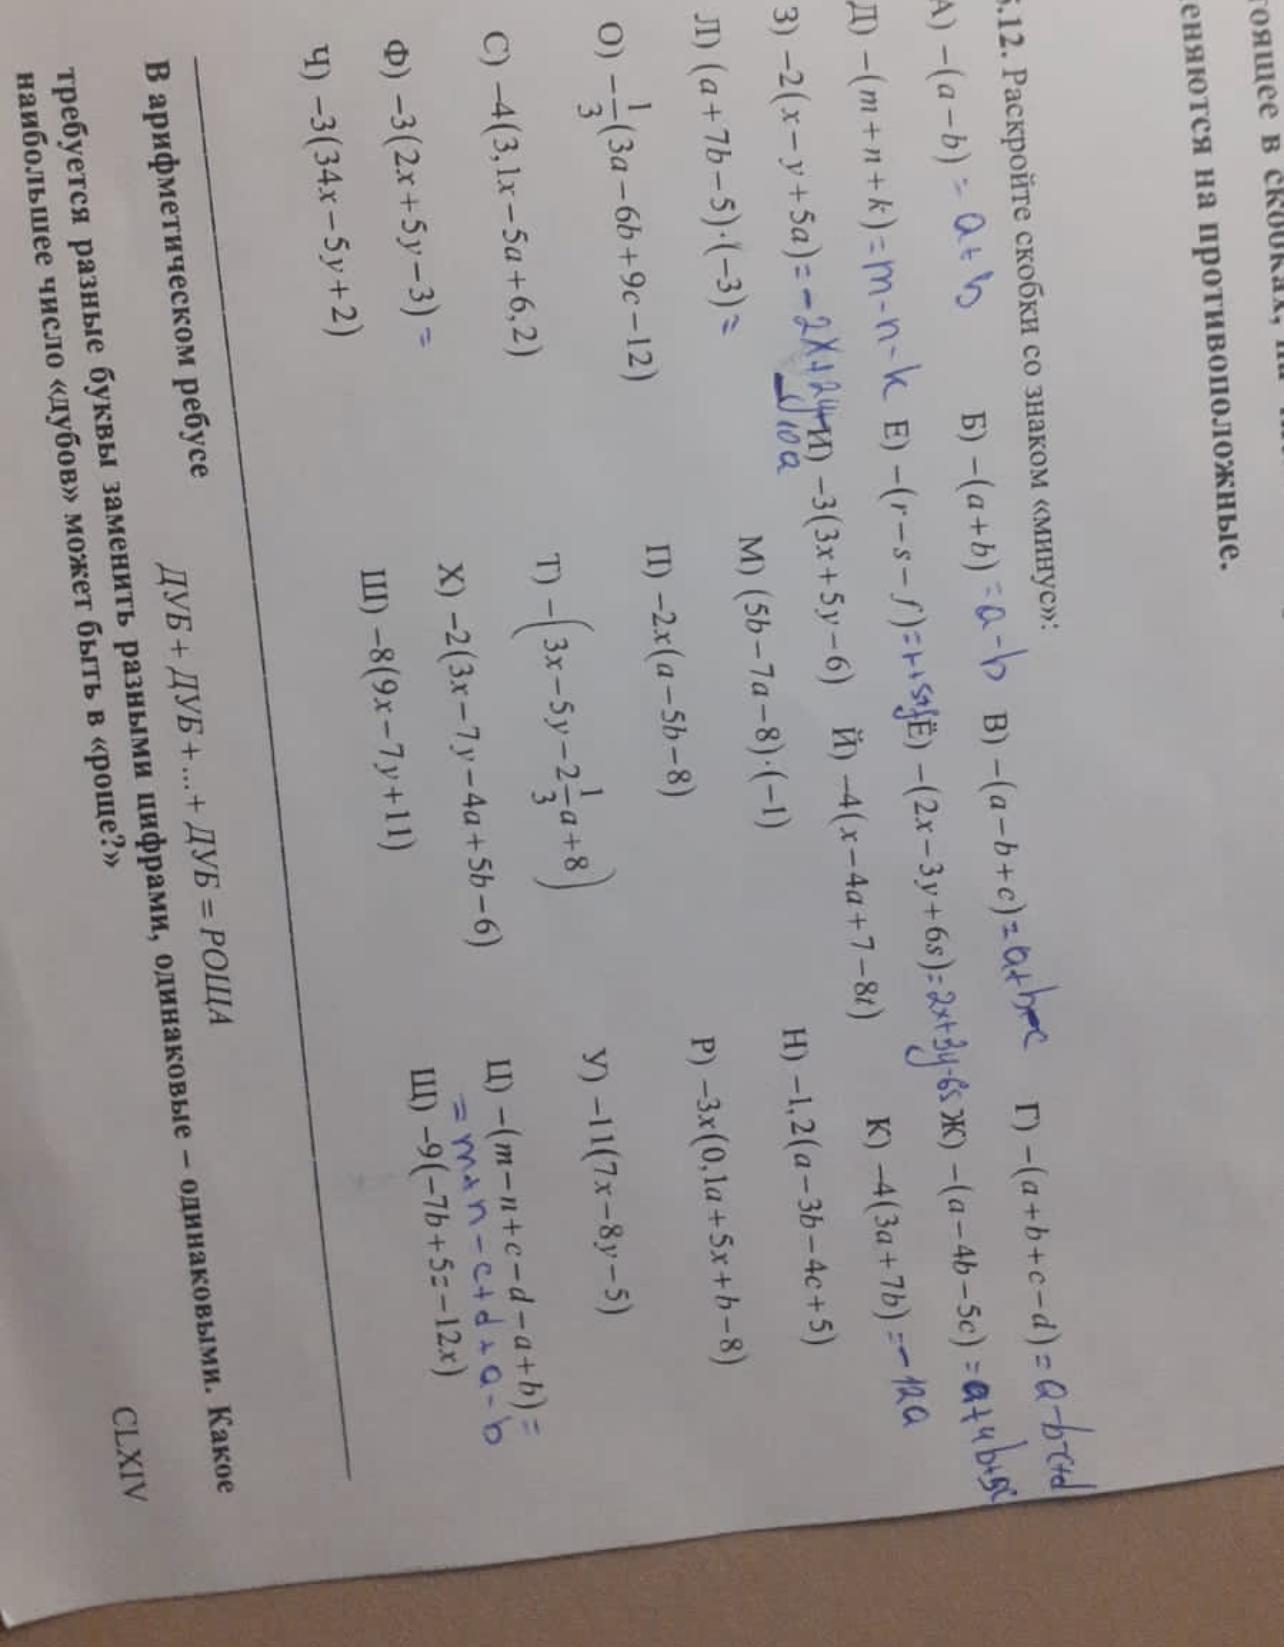 еняются на противоположные.
5.12. Раскройте скобки со знаком «минус»:
А) −(a−b) = a+b Б) −(a+b) = a−b В) −(a−b+c) = a+b−c Г) −(a+b+c−d) = a−b−c+d
Д) −(m+n+k) = m−n−k Е) −(r−s−f) = r+s+f Ё) −(2x−3y+6s) = 2x+3y−6s Ж) −(a−4b−5c) = a+4b+5c
З) −2(x−y+5a) = −2x+2y− И) −3(3x+5y−6) Й) −4(x−4a+7−8t) К) −4(3a+7b) = −12a
10a
Л) (a+7b−5)·(−3) = М) (5b−7a−8)·(−1) Н) −1,2(a−3b−4c+5)
О) −1/3(3a−6b+9c−12) П) −2x(a−5b−8) Р) −3x(0,1a+5x+b−8)
С) −4(3,1x−5a+6,2) Т) −(3x−5y−2 1/3 a+8) У) −11(7x−8y−5)
Ф) −3(2x+5y−3) = Х) −2(3x−7y−4a+5b−6) Ц) −(m−n+c−d−a+b) =
= m+n−c+d+a−b
Ч) −3(34x−5y+2) Ш) −8(9x−7y+11) Щ) −9(−7b+5z−12x)
В арифметическом ребусе ДУБ + ДУБ + ... + ДУБ = РОЩА
требуется разные буквы заменить разными цифрами, одинаковые – одинаковыми. Какое
наибольшее число «дубов» может быть в «роще?»
CLXIV